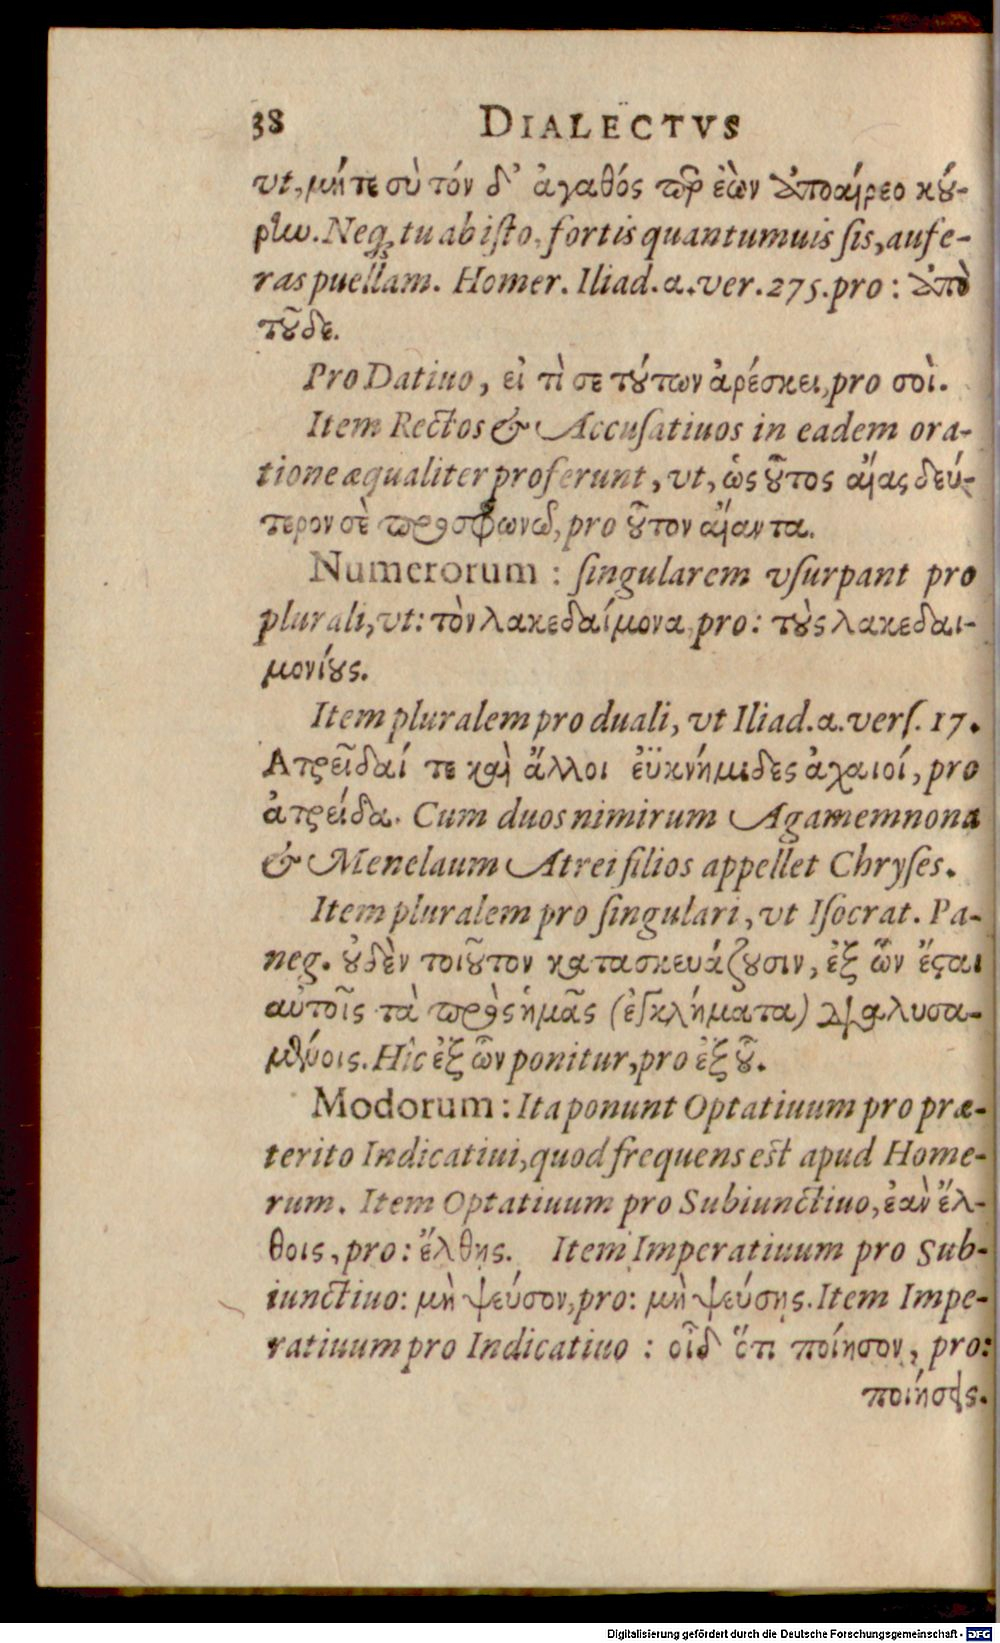 38 DIALECTVS
vt, μήτε σὺ τόν δ' ἀγαθός πὲρ ἐὼν ἀποαίρεο κού-
ρην. Neq; tu ab isto, fortis quantumuis sis, aufe-
ras puellam. Homer. Iliad. α. ver. 275. pro: ἀπὸ
τοῦδε.
Pro Datiuo, εἰ τὶ σε τούτων ἀρέσκει, pro σοὶ.
Item Rectos & Accusatiuos in eadem ora-
tione æqualiter proferunt, vt, ὡς οὗτος αἴας δεύ-
τερον σὲ προσφωνῶ, pro οὗτον αἴαντα.
Numerorum: singularem vsurpant pro
plurali, vt: τὸν λακεδαίμονα, pro: τοὺς λακεδαι-
μονίους.
Item pluralem pro duali, vt Iliad. α. vers. 17.
Ατρεῖδαί τε καὶ ἄλλοι ἐϋκνήμιδες ἀχαιοί, pro
ἀτρείδα. Cum duos nimirum Agamemnona
& Menelaum Atrei filios appellet Chryses.
Item pluralem pro singulari, vt Isocrat. Pa-
neg. οὐδὲν τοιοῦτον κατασκευάζουσιν, ἐξ ὧν ἔσται
αὐτοῖς τὰ πρὸς ἡμᾶς (ἐγκλήματα) διαλυσα-
μένοις. Hîc ἐξ ὧν ponitur, pro ἐξ οὗ.
Modorum: Ita ponunt Optatiuum pro præ-
terito Indicatiui, quod frequens est apud Home-
rum. Item Optatiuum pro Subiunctiuo, ἐὰν ἔλ-
θοις, pro: ἔλθης. Item Imperatiuum pro Sub-
iunctiuo: μὴ ψεύσον, pro: μὴ ψεύσης. Item Impe-
ratiuum pro Indicatiuo: οἶδ ὅτι ποίησον, pro:
ποιήσεις.
Digitalisierung gefördert durch die Deutsche Forschungsgemeinschaft - DFG